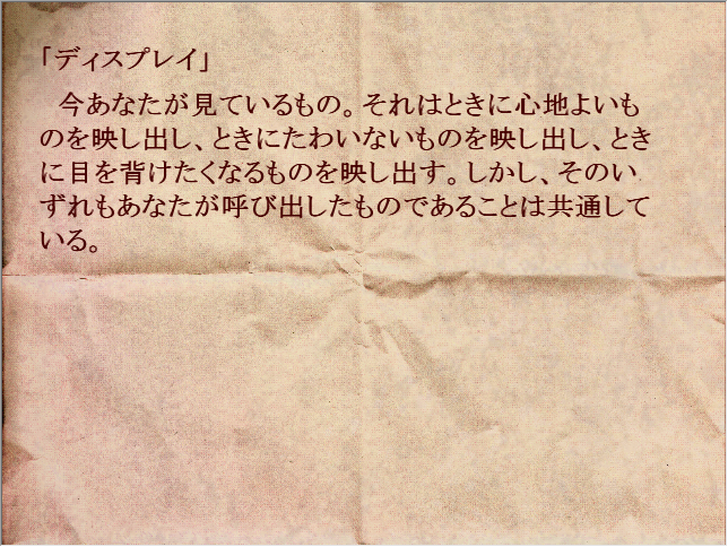 「ディスプレイ」
今あなたが見ているもの。それはときに心地よいも
のを映し出し、ときにたわいないものを映し出し、とき
に目を背けたくなるものを映し出す。しかし、そのい
ずれもあなたが呼び出したものであることは共通して
いる。